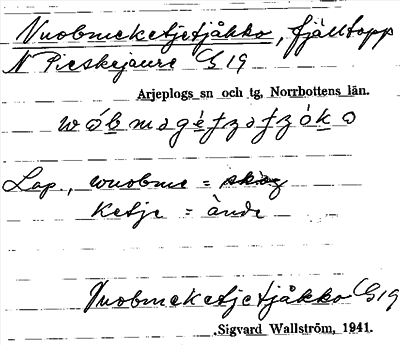 Vuobmeketjetjåkko, fjälltopp
N Pieskejaure G 19
Arjeplogs sn och tg, Norrbottens län.
Lap., vuobme = skog
ketje = ände
Vuobmeketjetjåkko G 19
Sigvard Wallström, 1941.